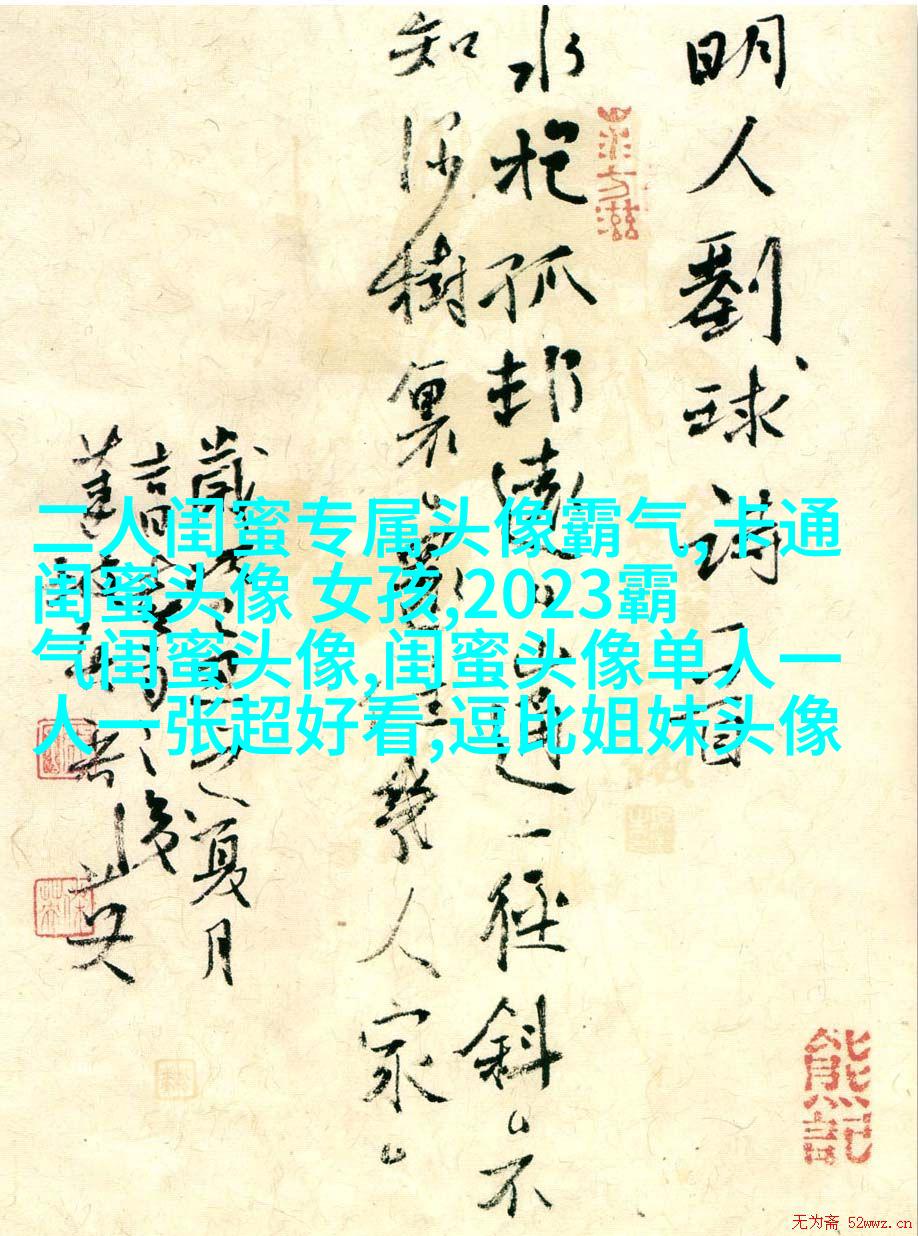 明人劉球詩一首
水抱孤村遠山通一徑斜不
知深樹裏還住幾人家
歲夏月
二人闺蜜专属头像霸气,卡通
闺蜜头像 女孩,2023霸
气闺蜜头像,闺蜜头像单人一
人一张超好看,逗比姐妹头像
熊記
无为斋 52wwz.cn